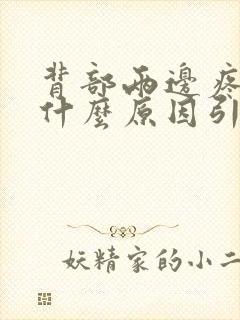 背部兩邊疼
什麼原因引
妖精家的小二